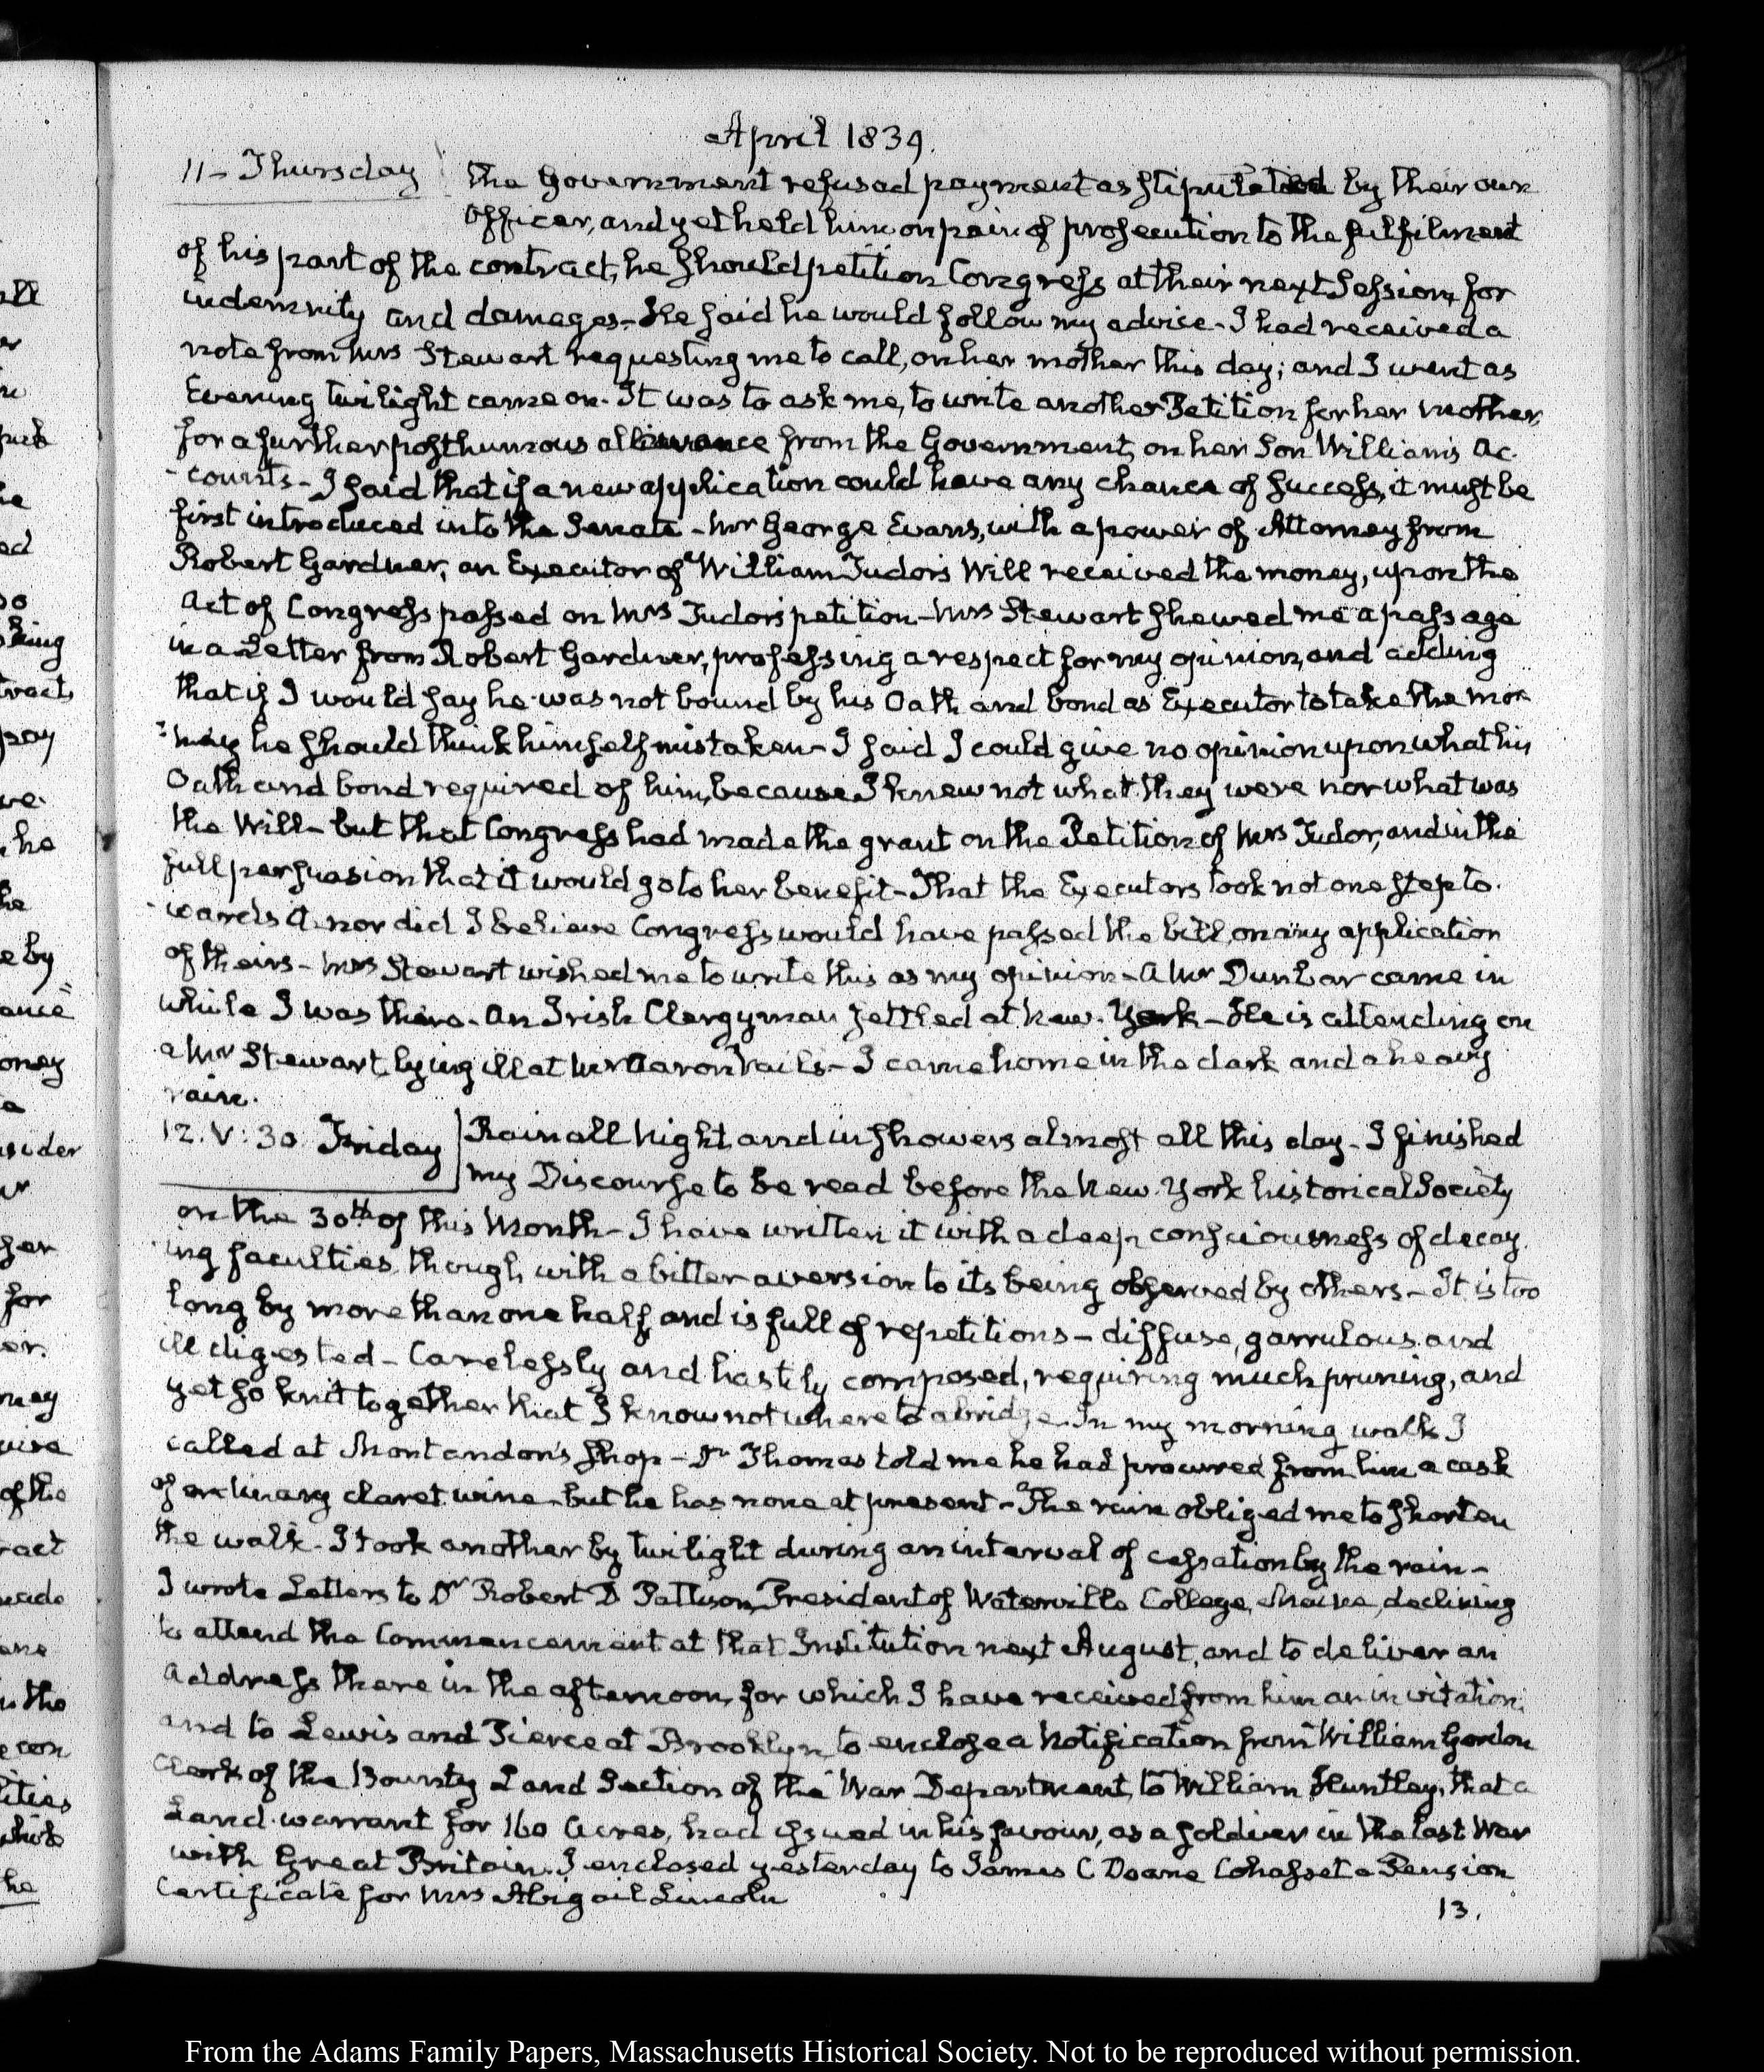 April 1839.
11 - Thursday
the Government refused payment as stipulated by their own
Officer, and yet held him on pain of prosecution to the fulfilment
of his part of the contract, he should petition Congress at their next Session, for
indemnity and damages - He said he would follow my advice - I had received a
note from Mrs Stewart requesting me to call, on her mother this day; and I went as
Evening twilight came on. It was to ask me, to write another Petition for her mother,
for a further posthumous allowance from the Government, on her Son William's Ac-
-counts - I said that if a new application could have any chance of success, it must be
first introduced into the Senate - Mr George Evans, with a power of Attorney from
Robert Gardner, an Executor of William Tudor's Will received the money, upon the
Act of Congress passed on Mrs Tudor's petition - Mrs Stewart shewed me a passage
in a Letter from Robert Gardner, professing a respect for my opinion, and adding
that if I would say he was not bound by his Oath and bond as Executor to take the mo-
-ney he should think himself mistaken - I said I could give no opinion upon what his
Oath and bond required of him, because I knew not what they were nor what was
the Will - but that Congress had made the grant on the Petition of Mrs Tudor, and in the
full persuasion that it would go to her benefit - That the Executors took not one step to-
-wards it nor did I believe Congress would have passed the bill, on any application
of theirs - Mrs Stewart wished me to write this as my opinion - A Mr Dunbar came in
while I was there - An Irish Clergyman settled at New-York - He is attending on
a Mr Stewart, lying ill at Mr Aaron Vail's - I came home in the dark and a heavy
rain.
12. V: 30. Friday
Rain all Night, and in showers almost all this day - I finished
my Discourse to be read before the New-York historical Society
on the 30th of this Month - I have written it with a deep consciousness of decay-
-ing faculties, though with a bitter aversion to its being observed by others - It is too
long by more than one half, and is full of repetitions - diffuse, garrulous and
ill digested - Carelessly and hastily composed, requiring much pruning, and
yet so knit together that I know not where to abridge. In my morning walk I
called at Montandon's Shop - Dr Thomas told me he had procured from him a cask
of ordinary claret wine - but he has none at present - The rain obliged me to shorten
the walk - I took another by twilight during an interval of cessation by the rain -
I wrote Letters to Dr Robert D Pattison, President of Waterville College, Maine, declining
to attend the Commencement at that Institution next August, and to deliver an
Address there in the afternoon, for which I have received from him an invitation;
and to Lewis and Pierce at Brooklyn to enclose a Notification from William Gordon
Clerk of the Bounty Land Section of the War Department, to William Huntley, that a
Land-warrant for 160 Acres, had issued in his favour, as a soldier in the last War
with Great Britain. I enclosed yesterday to James C Doane Cohasset a Pension
Certificate for Mrs Abigail Lincoln
13.
From the Adams Family Papers, Massachusetts Historical Society. Not to be reproduced without permission.